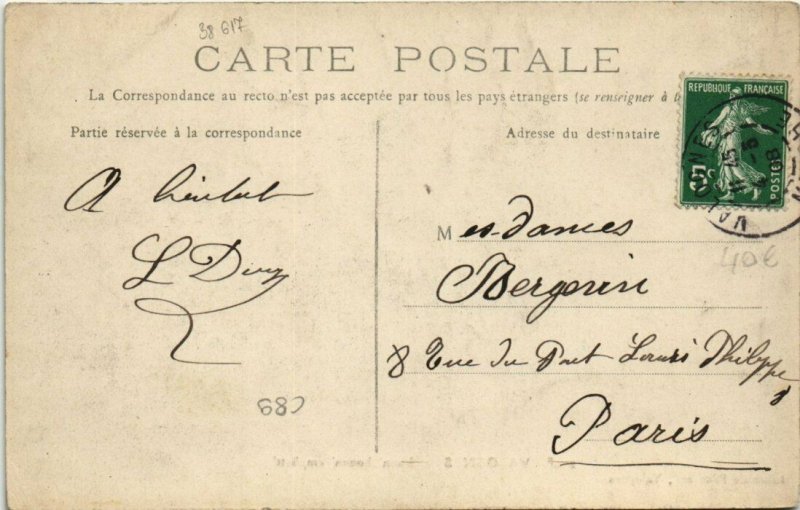 38 617
CARTE POSTALE
La Correspondance au recto n'est pas acceptée par tous les pays étrangers (se renseigner à la
Partie réservée à la correspondance
Adresse du destinataire
REPUBLIQUE FRANÇAISE
5c
POSTES
A bientôt
L
Mesdames
40€
8 Rue du Pont Louis Philippe
Paris
C89